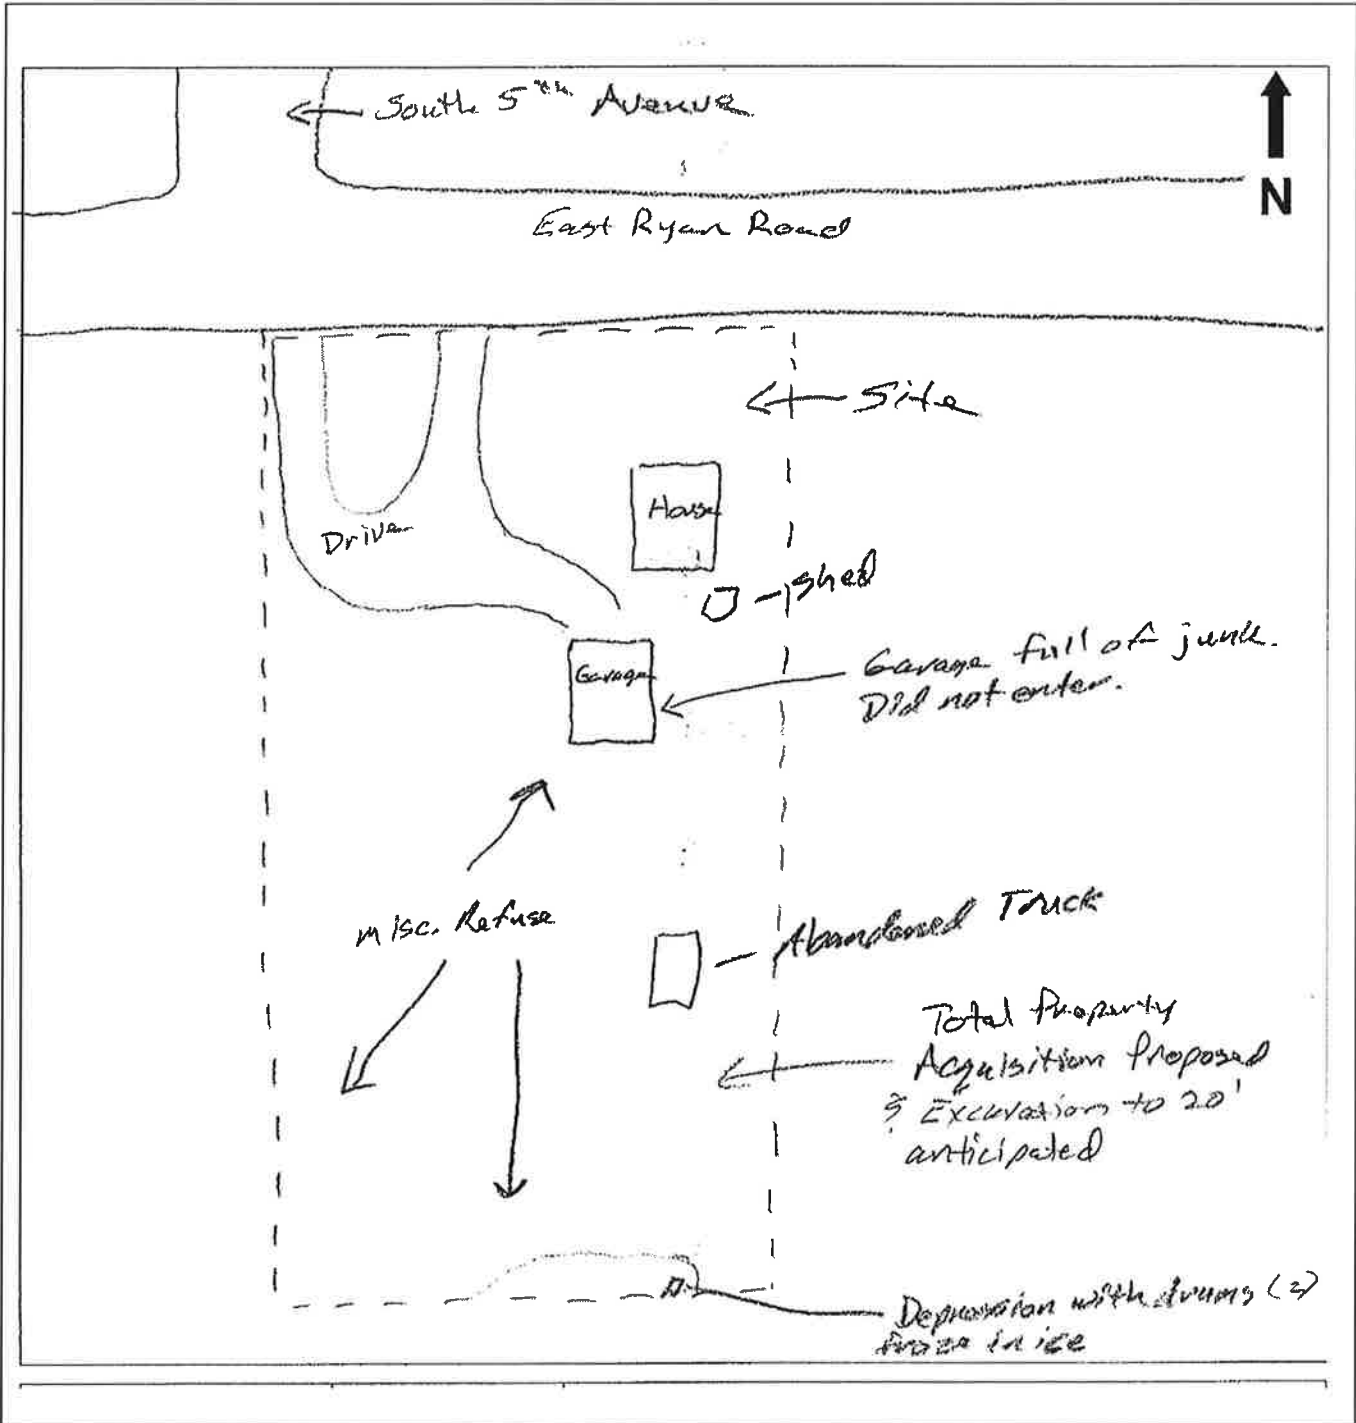 South 5th Avenue
N
East Ryan Road
Site
House
Drive
shed
Garage
Garage full of junk.
Did not enter.
misc. Refuse
Abandoned Truck
Total Property
Acquisition Proposed
& Excavation to 20'
anticipated
Depression with drums
froze in ice